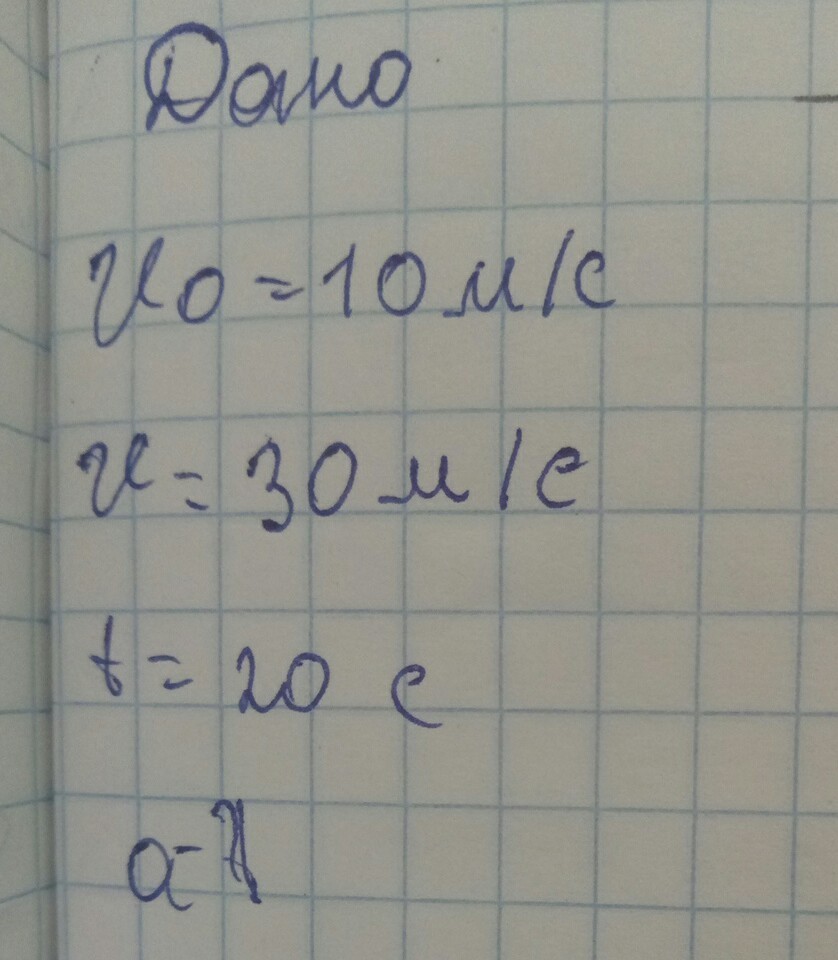 Дано
v0 = 10 м/с
v = 30 м/с
t = 20 с
a - ?